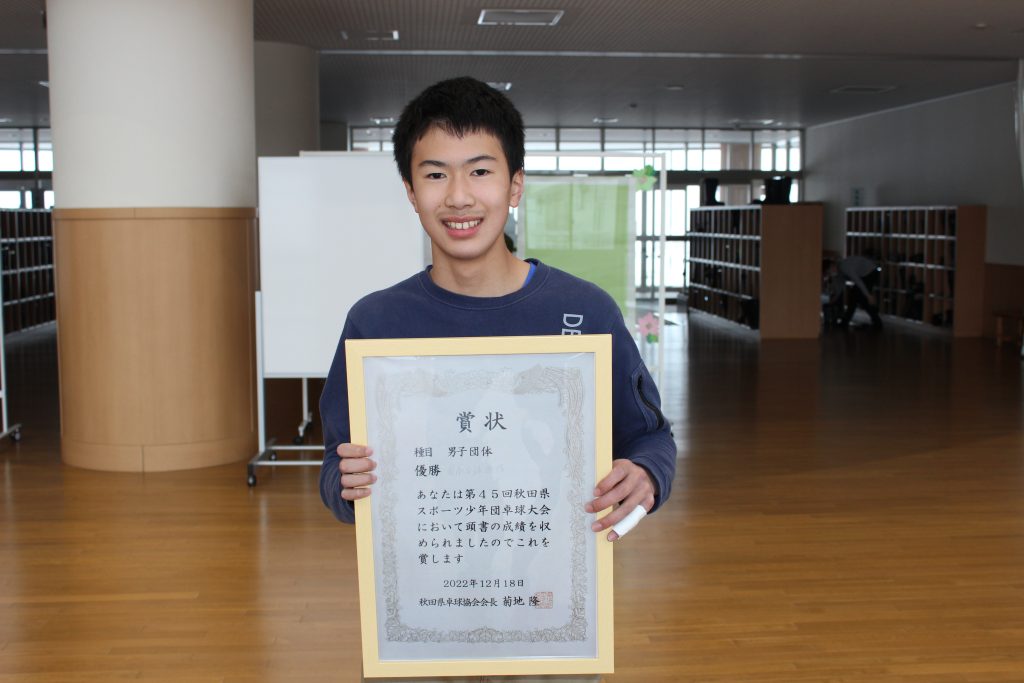 DE
賞状
種目 男子団体
優勝
あなたは第45回秋田県
スポーツ少年団卓球大会
において頭書の成績を収
められましたのでこれを
賞します
2022年12月18日
秋田県卓球協会会長 菊地 隆